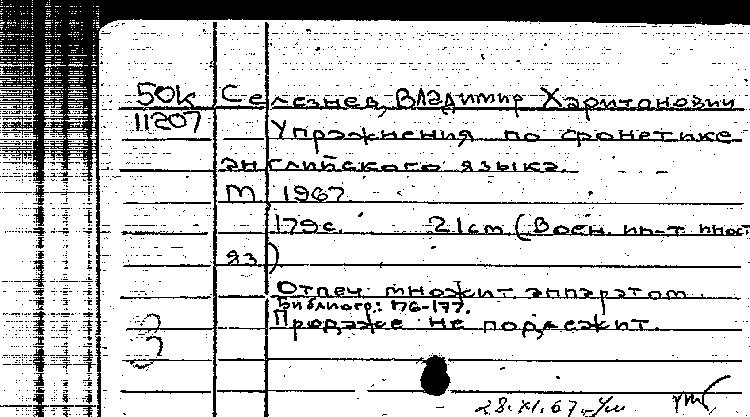 50к Селезнев, Владимир Харитонович
11207 Упражнения по фонетике
английского языка.
М, 1967
179с. 21см (Воен. ин-т иност
яз)
Отпеч. множит. аппаратом.
Библиогр.: 176-177.
Продаже не подлежит.
3
28.XI.67